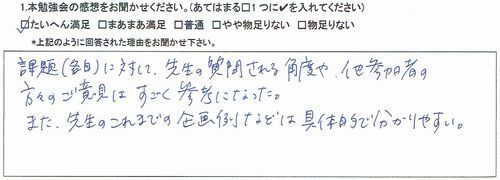 1.本勉強会の感想をお聞かせください。(あてはまる□1つに✔を入れてください)
☑たいへん満足 □まあまあ満足 □普通 □やや物足りない □物足りない
*上記のように回答された理由をお聞かせ下さい。
課題(各自)に対して、先生の質問される角度や、他参加者の
方々のご意見はすごく参考になった。
また、先生のこれまでの企画例などは具体的で分かりやすい。